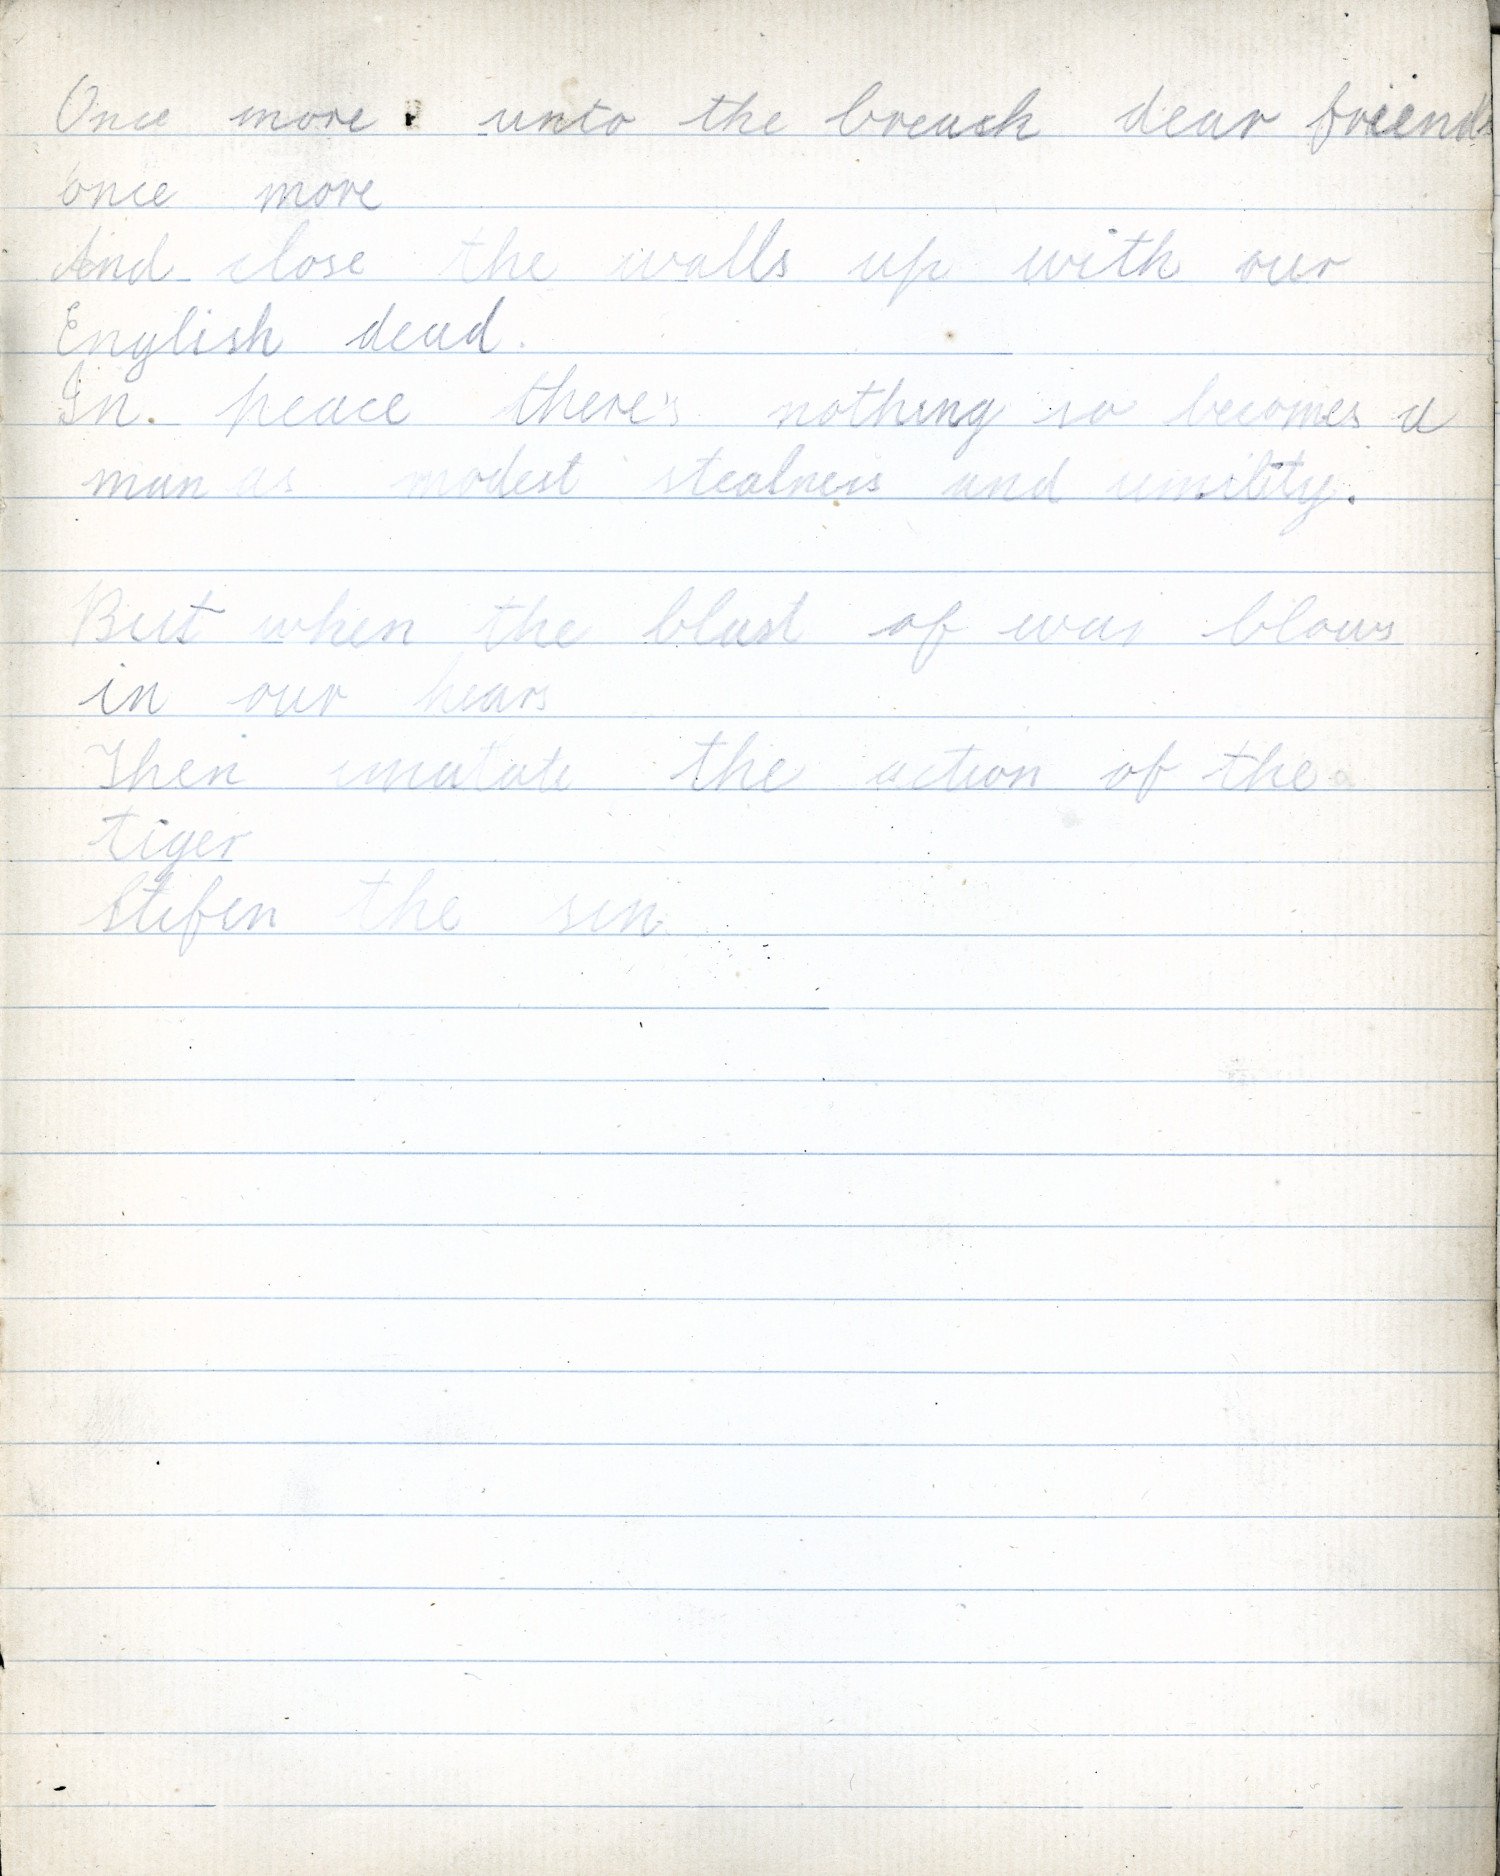 Once more unto the breach dear friends
once more
And close the walls up with our
English dead.
In peace there's nothing so becomes a
man as modest stealness and umility.
But when the blast of war blows
in our hears
Then imatate the action of the
tiger
Stifen the sin